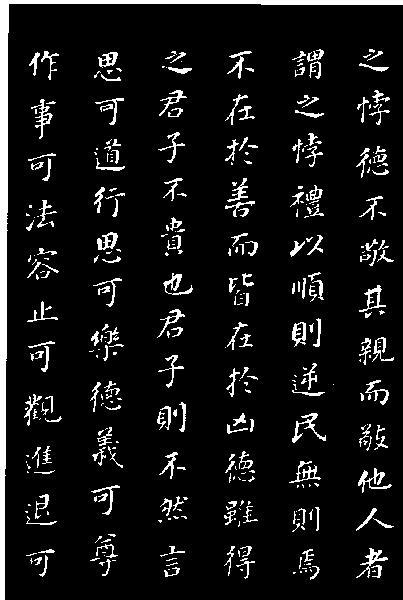 之悖德不敬其親而敬他人者
謂之悖禮以順則逆民無則焉
不在於善而皆在於凶德雖得
之君子不貴也君子則不然言
思可道行思可樂德義可尊
作事可法容止可觀進退可